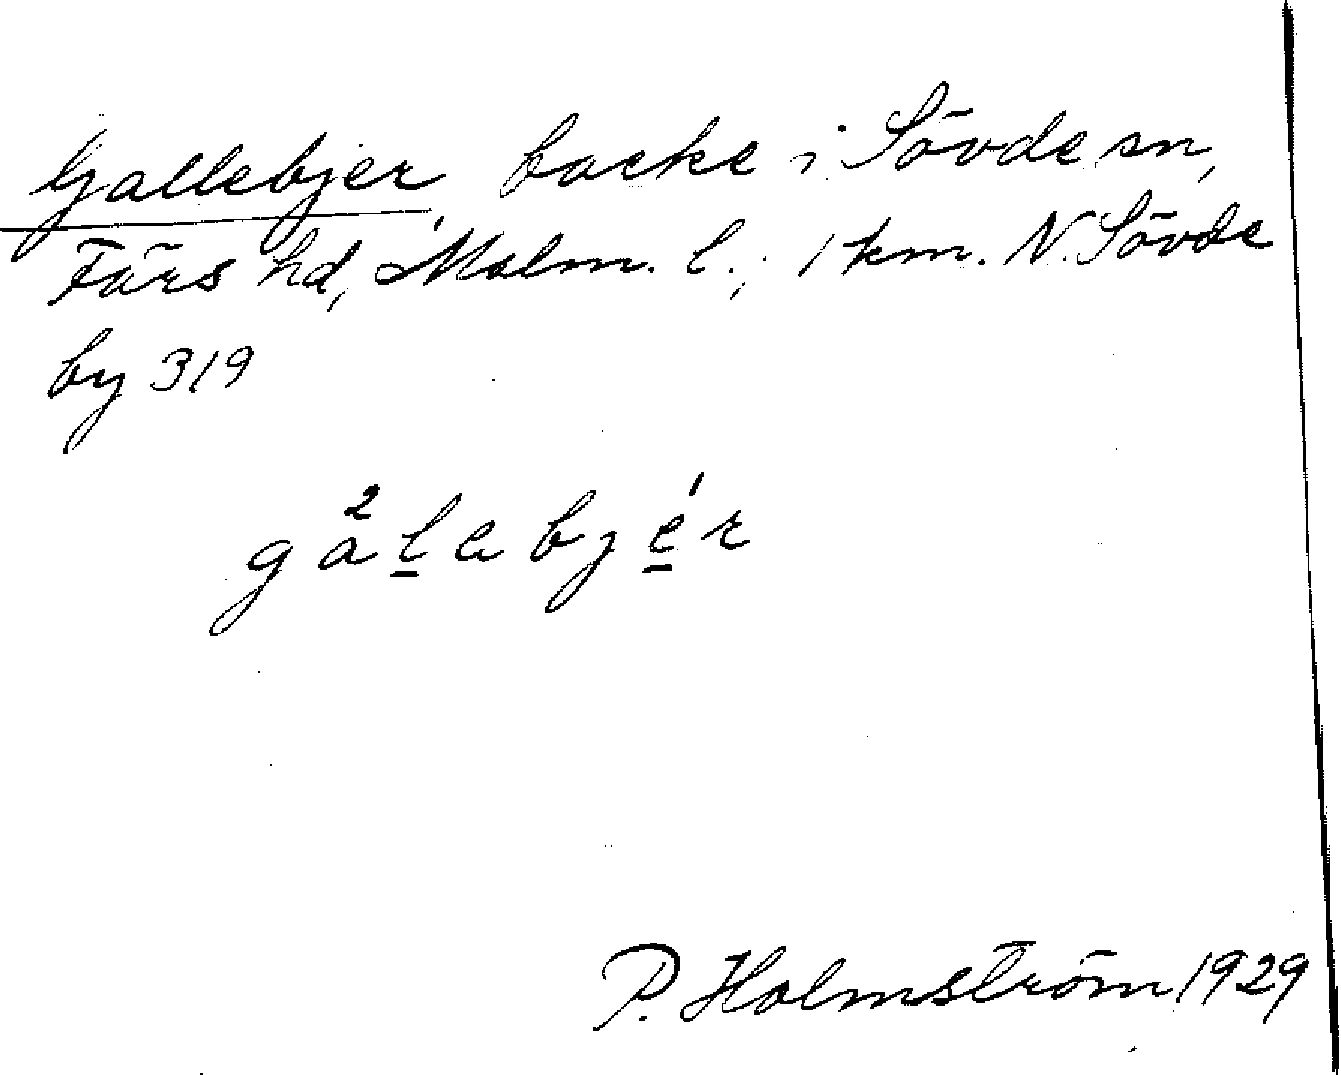 Gallebjer backe i Sövde sn,
Färs hd, Malm. l.; 1 km. N. Sövde
by 319
ga²l̲abjé̲r
P. Holmström 1929